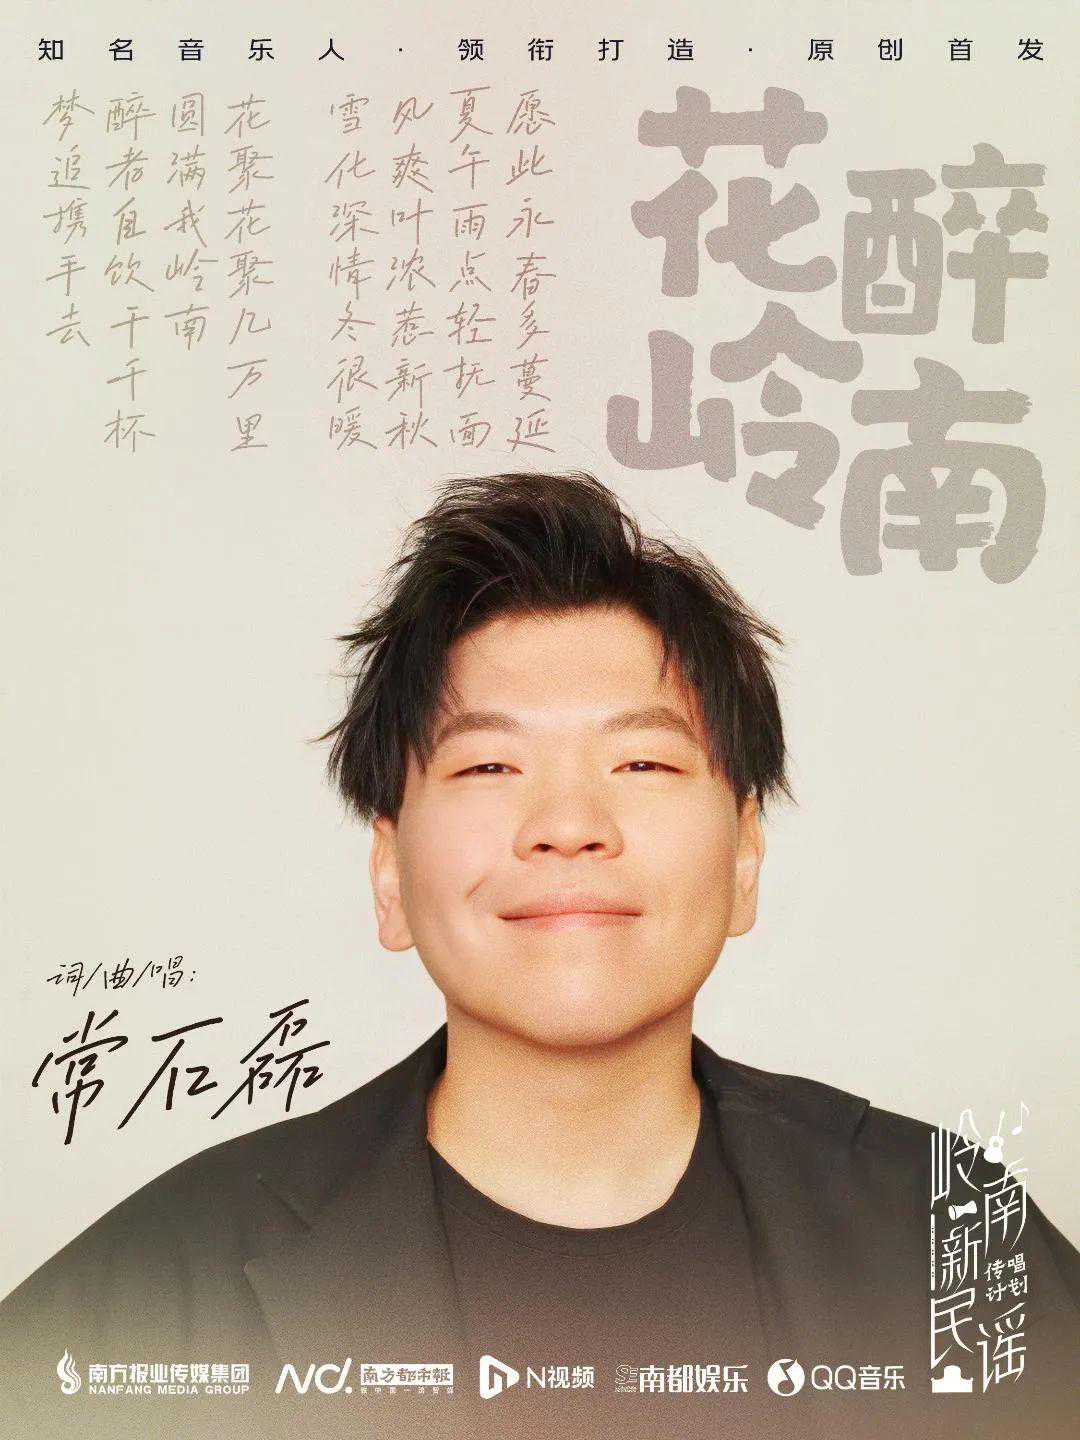 知名音乐人·领衔打造·原创首发
花醉岭南
愿此永春多蔓延
夏午雨点轻抚面
风爽叶浓惹新秋
雪化深情冬很暖
花聚花聚几万里
圆满我岭南
醉者自饮千千杯
梦追携手去
词/曲/唱：
常石磊
岭南新民谣
传唱计划
南方报业传媒集团
NANFANG MEDIA GROUP
ND.
南方都市報
N视频
南都娱乐
QQ音乐